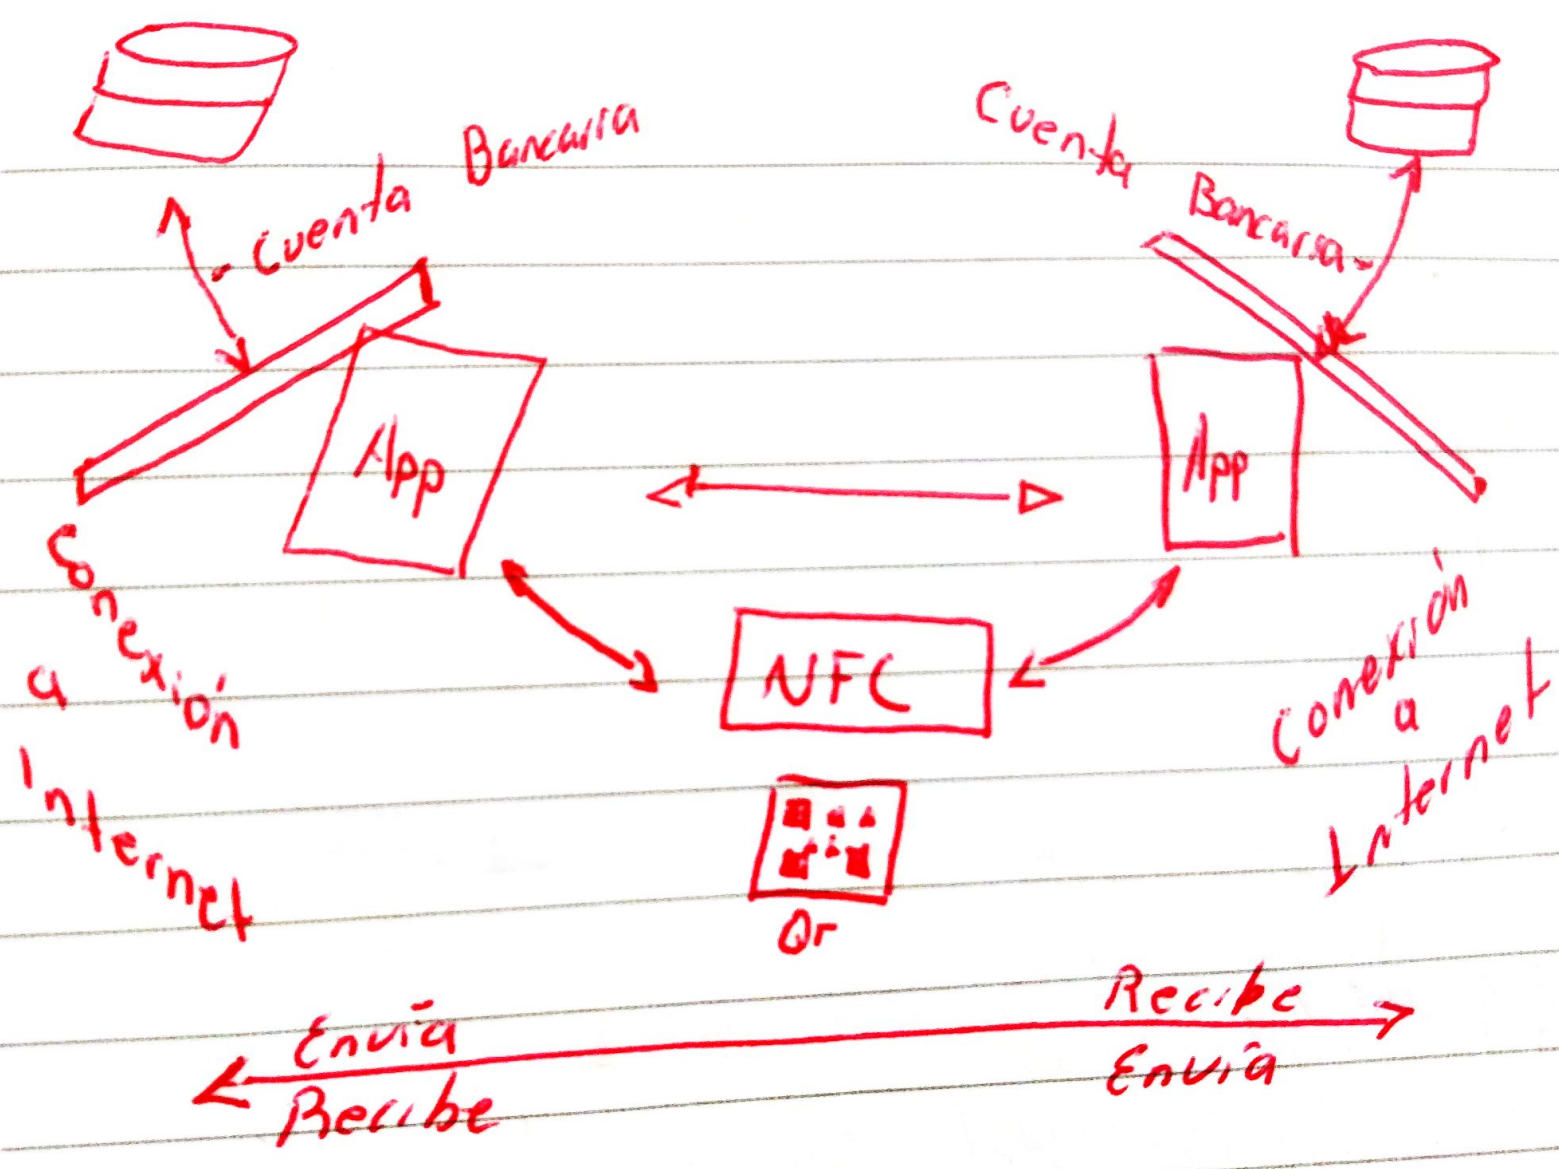 - Cuenta Bancaria
Cuenta Bancaria -
App
App
Conexión
a
Internet
NFC
Conexión
a
Internet
Qr
Envía
Recibe
Recibe
Envía